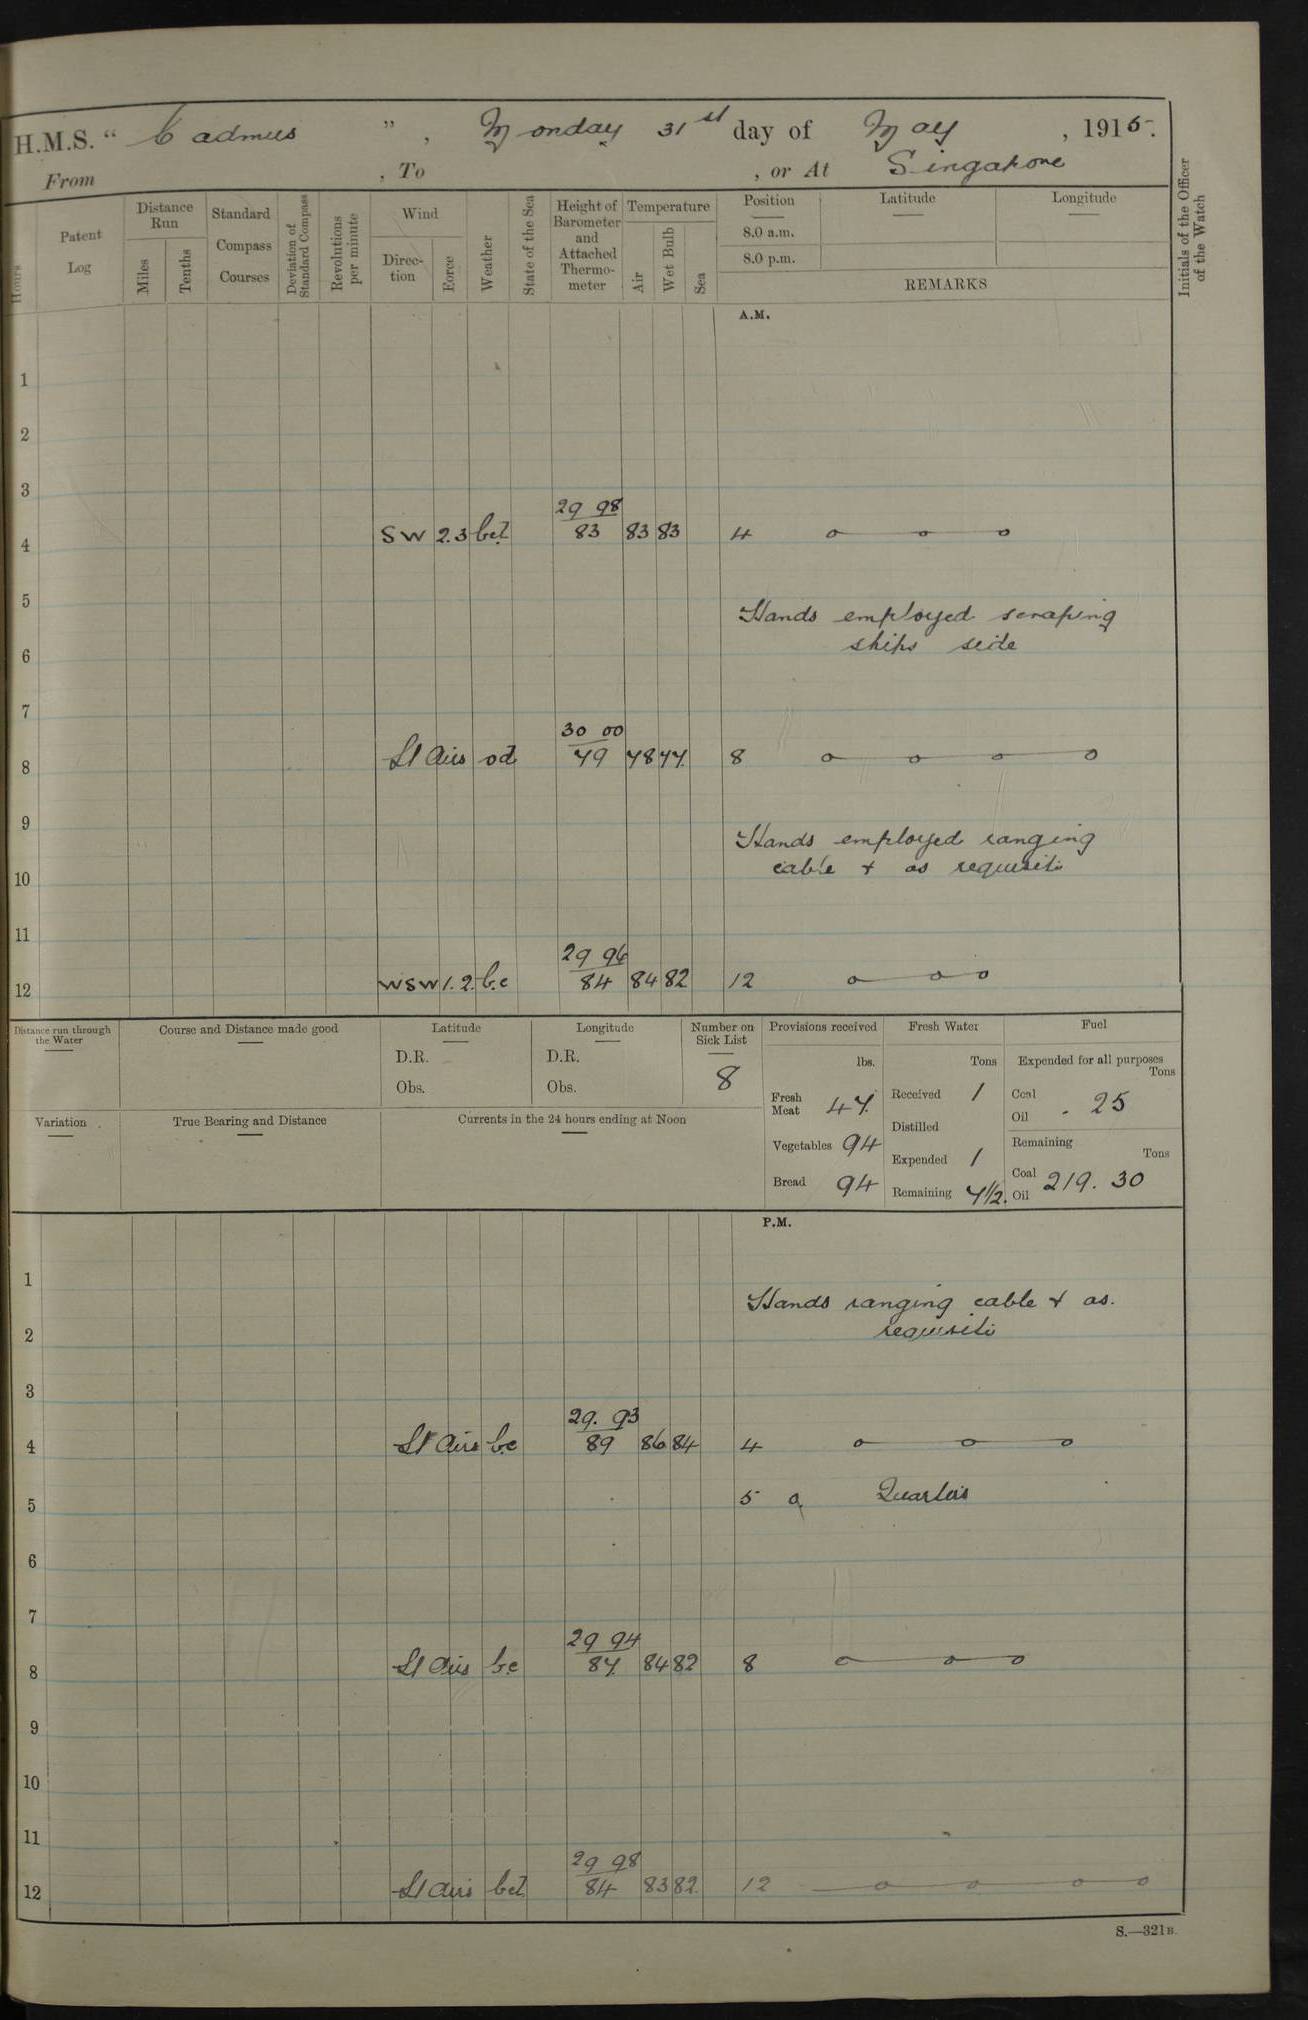 H.M.S. " Cadmus " , Monday 31st day of May , 1915.
From , To , or At Singapore
Hours
Patent Log
Distance Run
Miles
Tenths
Standard Compass Courses
Deviation of Standard Compass
Revolutions per minute
Wind
Direction
Force
Weather
State of the Sea
Height of Barometer and Attached Thermometer
Temperature
Air
Wet Bulb
Sea
Position
8.0 a.m.
8.0 p.m.
Latitude
Longitude
REMARKS
Initials of the Officer of the Watch
A.M.
1
2
3
29 98
4 SW 2.3 bcl 83 83 83 4
5 Hands employed scraping
6 ships side
7
30 00
8 Lt Airs od 79 78 77 8
9 Hands employed ranging
10 cable + as requisite
11
29 96
12 WSW 1.2. b.c 84 84 82 12
Distance run through the Water
Course and Distance made good
Latitude
D.R.
Obs.
Longitude
D.R.
Obs.
Number on Sick List
8
Variation
True Bearing and Distance
Currents in the 24 hours ending at Noon
Provisions received
lbs.
Fresh Meat 47
Vegetables 94
Bread 94
Fresh Water
Tons
Received 1
Distilled
Expended 1
Remaining 7 1/2.
Fuel
Expended for all purposes
Tons
Coal
Oil . 25
Remaining
Tons
Coal
Oil 219. 30
P.M.
1 Hands ranging cable + as.
2 requisite
3
29. 93
4 Lt Airs bc 89 86 84 4
5 5 Quarters
6
7
29 94
8 Lt Airs b.c 87 84 82 8
9
10
11
29 98
12 Lt Airs bcl 84 83 82 12
S.—321B.